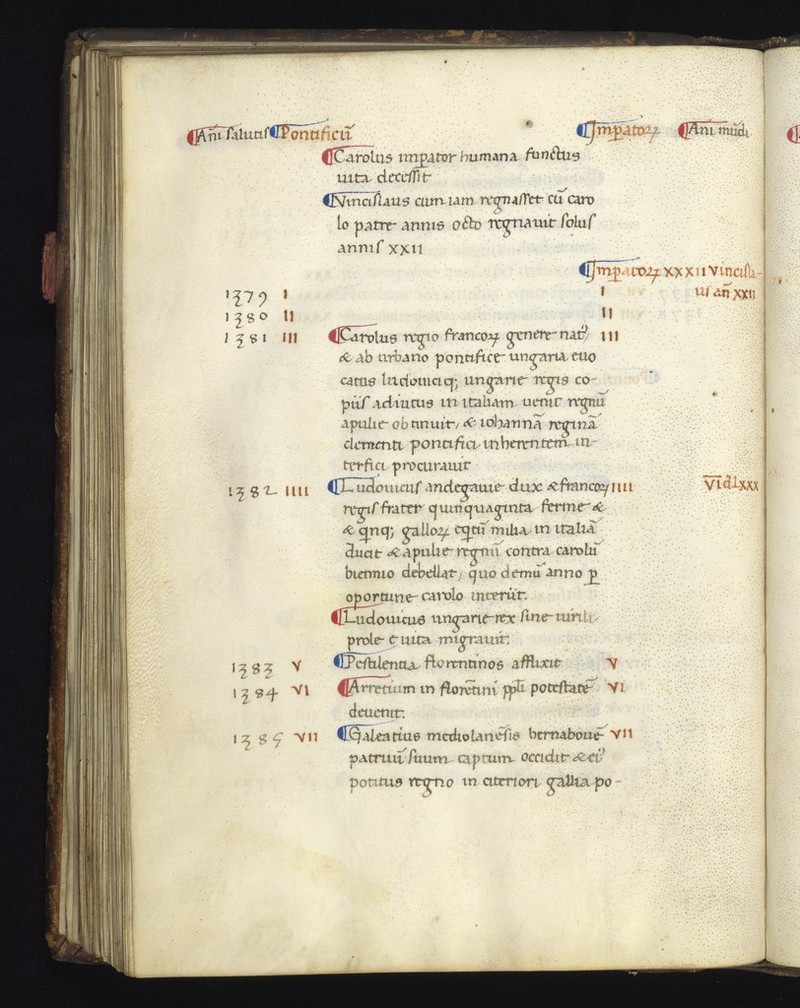 Añi salutis Pontificũ Imꝑatoꝝ Ani mũdi
Carolus imꝑator humana functus
uita decessit
Vincislaus cum iam regnasset cũ caro
lo patre annis octo regnauit solus
annis xxii
Imꝑatoꝝ xxxii Vincisla-
1379 I I us añ xxii
1380 II II
1381 III Carolus regio francoꝝ genere natꝰ III
& ab urbano pontifice ungaria euo
catus ludouiciq; ungarie regis co-
piis adiutus in italiam uenit regnũ
apulie obtinuit, & iohannã reginã
clementi pontifici inherentem in-
terfici procurauit
1382 IIII Ludouicus andegauie dux & francoꝝ IIII VIdlxxx
regis frater quinquaginta ferme &
& qinq; galloꝝ eqtũ milia in italiã
ducit & apulie regnũ contra carolũ
biennio debellat, quo demũ anno ꝑ
oportune carolo interiit.
Ludouicus ungarie rex sine uirili
prole e uita migrauit.
1383 V Pestilentia florentinos afflixit V
1384 VI Arretium in florẽtini ppli potestatẽ VI
deuenit.
1385 VII Galeatius mediolanẽsis bernabouẽ VII
patruũ suum captum occidit & eiꝰ
potitus regno in citeriori gallia po-